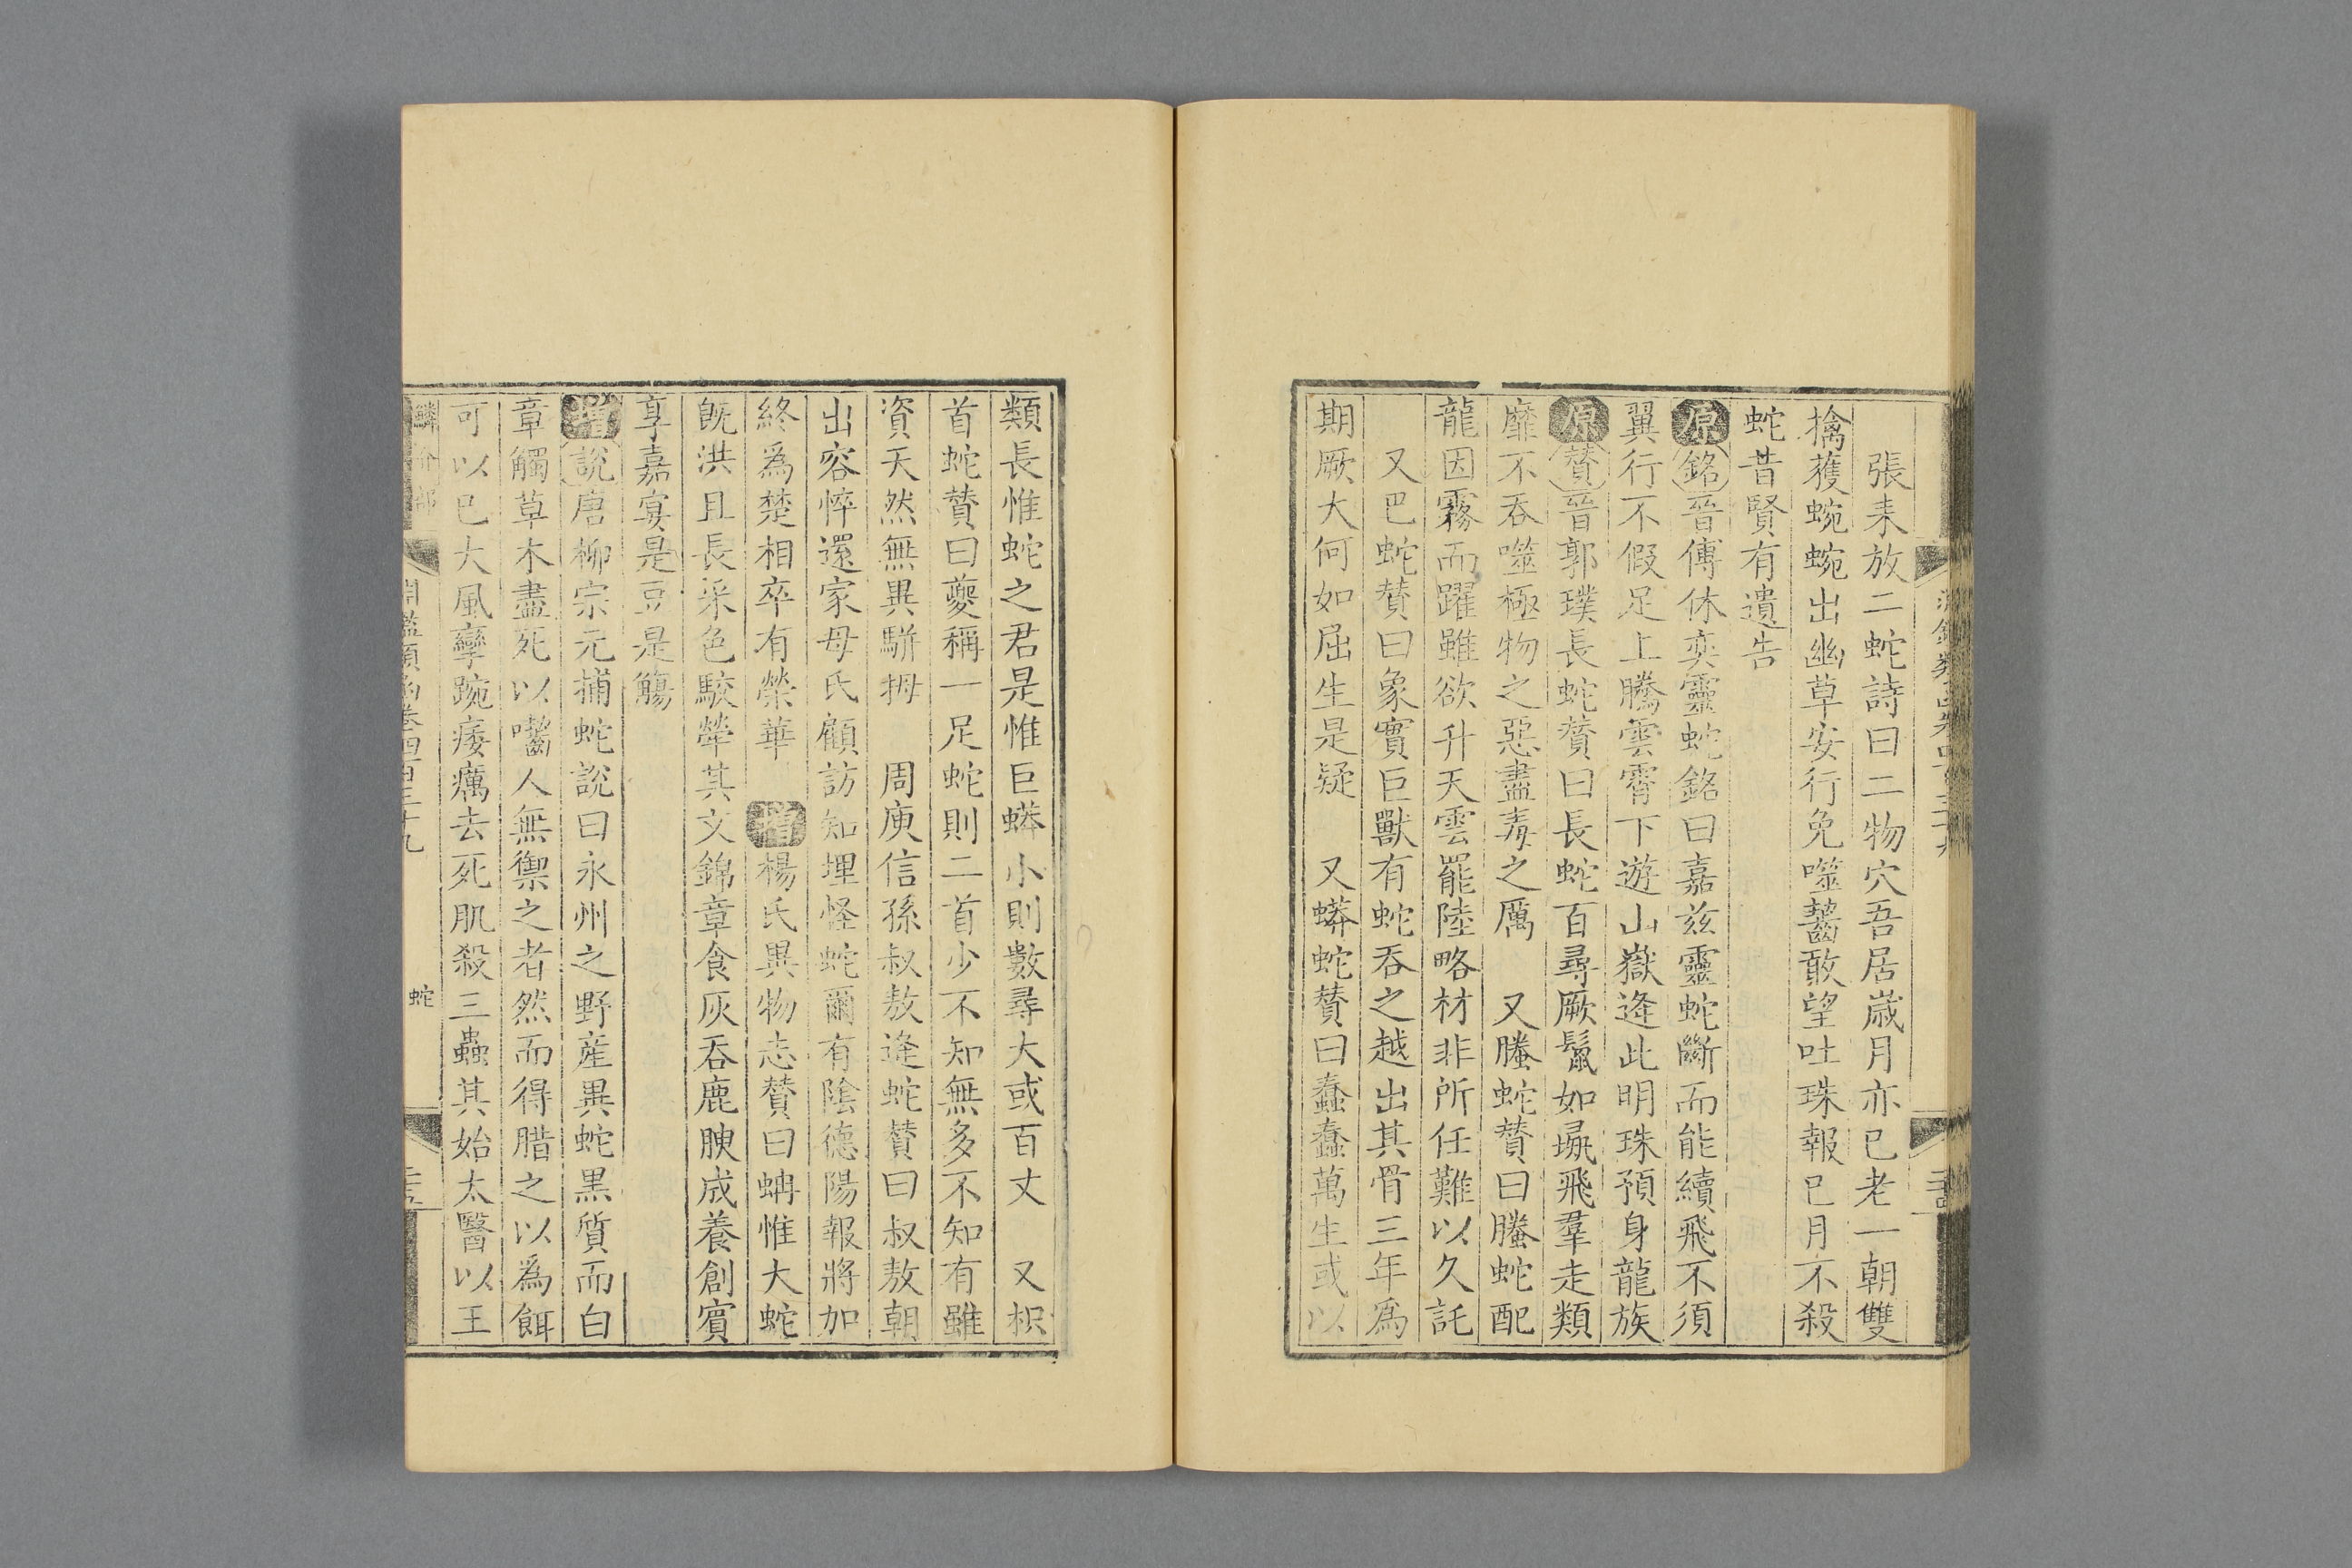 張耒放二蛇詩曰二物穴吾居歲月亦已老一朝雙
擒獲蜿蜿出幽草安行免噬齧敢望吐珠報已月不殺
蛇昔賢有遺告
原銘晉傅休奕靈蛇銘曰嘉兹靈蛇斷而能續飛不須
翼行不假足上騰雲霄下遊山嶽逄此明珠預身龍族
原贊晉郭璞長蛇贊曰長蛇百尋厥鬛如彘飛羣走類
靡不吞噬極物之惡盡毒之厲 又螣蛇贊曰螣蛇配
龍因霧而躍雖欲升天雲罷陸略材非所任難以久託
又巴蛇贊曰象實巨獸有蛇吞之越出其骨三年為
期厥大何如屈生是疑 又蟒蛇贊曰蠢蠢萬生或以
類長惟蛇之君是惟巨蟒小則數尋大或百丈 又枳
首蛇贊曰夔稱一足蛇則二首少不知無多不知有雖
資天然無異駢拇 周庾信孫叔敖逄蛇贊曰叔敖朝
出容悴還家母氏顧訪知埋怪蛇爾有陰德陽報將加
終為楚相卒有榮華 增楊氏異物志贊曰蚺惟大蛇
旣洪且長采色駮犖其文錦章食灰吞鹿腴成養創賓
享嘉宴是豆是觴
增說唐栁宗元捕蛇說曰永州之野産異蛇黑質而白
章觸草木盡死以嚙人無禦之者然而得腊之以為餌
可以已大風攣踠瘘癘去死肌殺三蟲其始太醫以王
鱗介部 淵鑑類函卷四百三十九 蛇